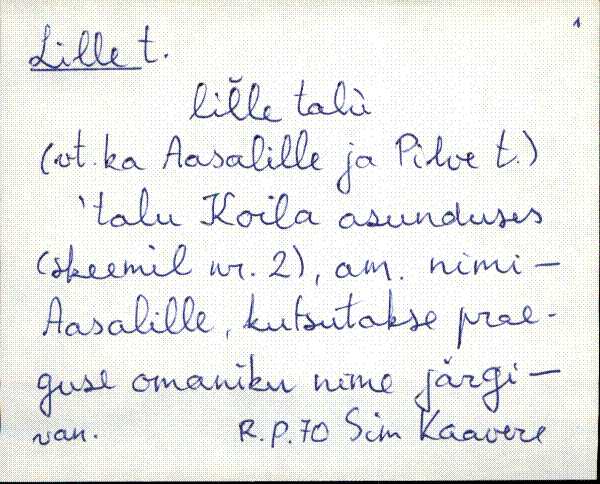 1
Lille t.
lil̆le talù
(vt. ka Aasalille ja Pilve t.)
'talu Koila asunduses
(skeemil nr. 2), am. nimi –
Aasalille, kutsutakse prae-
guse omaniku nime järgi –
van. R.P.70 Sim Kaavere